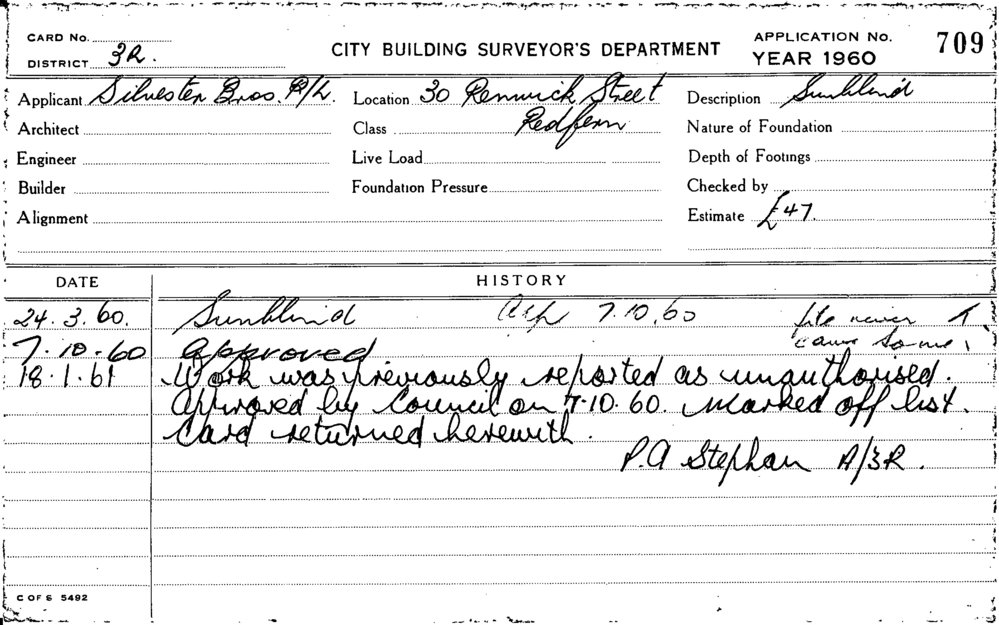 CARD No.
DISTRICT 3R.
CITY BUILDING SURVEYOR'S DEPARTMENT
APPLICATION No. 709
YEAR 1960
Applicant Silvester Bros. P/L. Location 30 Renwick Street Description Sunblind
Architect Class Redfern Nature of Foundation
Engineer Live Load Depth of Footings
Builder Foundation Pressure Checked by
Alignment Estimate £47.
DATE HISTORY
24.3.60. Sunblind 7.10.60 file never
7.10.60 approved came
18.1.61 Work was previously reported as unauthorised.
approved by Council on 7.10.60. Marked off list.
Card returned herewith.
P.A Stephan A/3R.
C OF S 5492